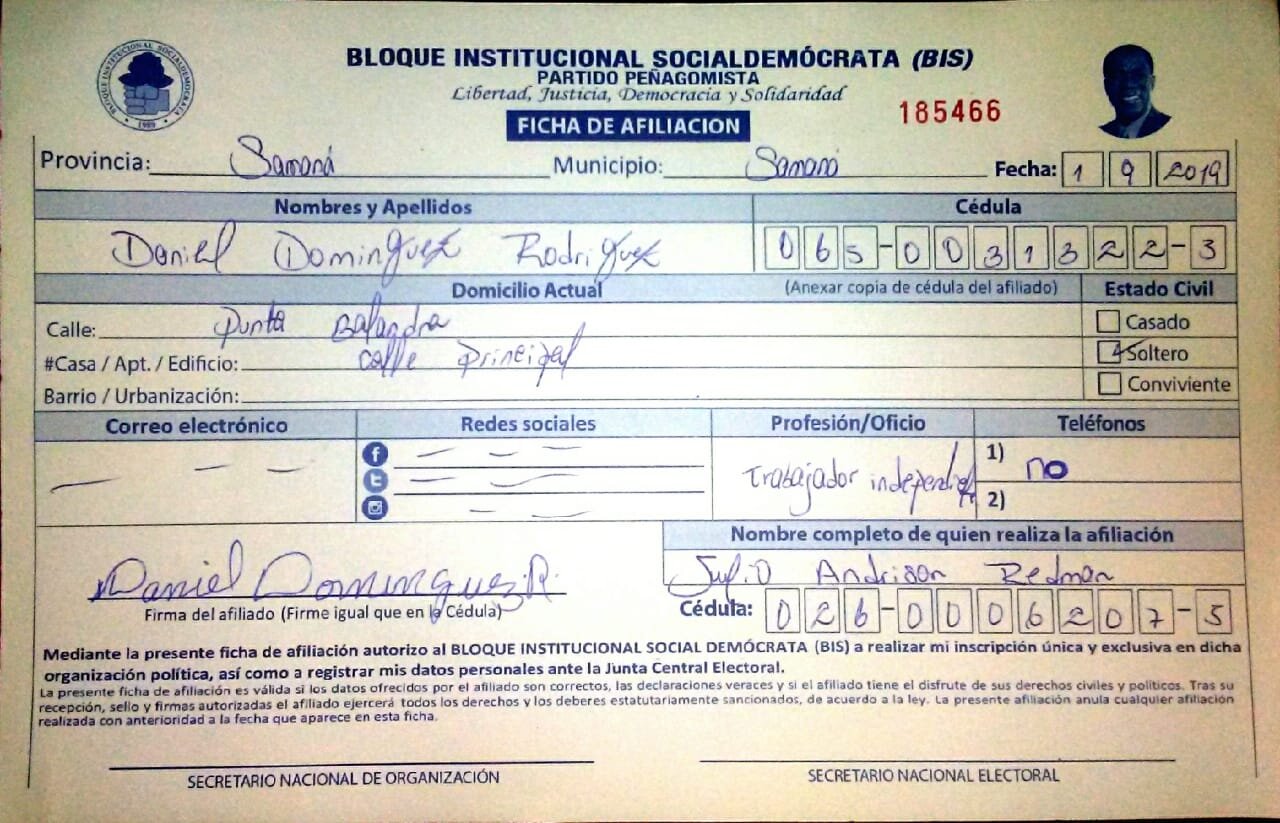 BLOQUE INSTITUCIONAL SOCIALDEMOCRATA
1989
BLOQUE INSTITUCIONAL SOCIALDEMÓCRATA (BIS)
PARTIDO PEÑAGOMISTA
Libertad, Justicia, Democracia y Solidaridad
185466
FICHA DE AFILIACION
Provincia: Samaná Municipio: Samaná Fecha: 1 9 2019
Nombres y Apellidos Cédula
Daniel Dominguez Rodriguez 065-0031322-3
Domicilio Actual (Anexar copia de cédula del afiliado) Estado Civil
Calle: Punta Balandra Casado
#Casa / Apt. / Edificio: calle Principal Soltero
Barrio / Urbanización: Conviviente
Correo electrónico Redes sociales Profesión/Oficio Teléfonos
Trabajador 1) no
2)
Nombre completo de quien realiza la afiliación
Daniel Dominguez.R. Julio Andrison Redman
Firma del afiliado (Firme igual que en la Cédula) Cédula: 026-0006207-5
Mediante la presente ficha de afiliación autorizo al BLOQUE INSTITUCIONAL SOCIAL DEMÓCRATA (BIS) a realizar mi inscripción única y exclusiva en dicha
organización política, así como a registrar mis datos personales ante la Junta Central Electoral.
La presente ficha de afiliación es válida si los datos ofrecidos por el afiliado son correctos, las declaraciones veraces y si el afiliado tiene el disfrute de sus derechos civiles y políticos. Tras su
recepción, sello y firmas autorizadas el afiliado ejercerá todos los derechos y los deberes estatutariamente sancionados, de acuerdo a la ley. La presente afiliación anula cualquier afiliación
realizada con anterioridad a la fecha que aparece en esta ficha.
SECRETARIO NACIONAL DE ORGANIZACIÓN SECRETARIO NACIONAL ELECTORAL